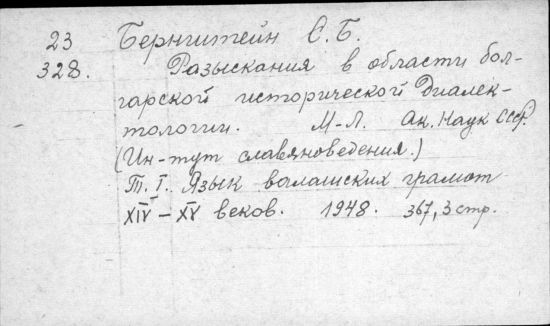 23 Бернштейн С. Б.
328. Разыскания в области бол-
гарской исторической Диалек-
тологии. М-Л. Ак. Наук СССР.
(Ин-тут славяноведения.)
Т. I. Язык валашских грамот
XIV – XV веков. 1948. 367, 3 стр.